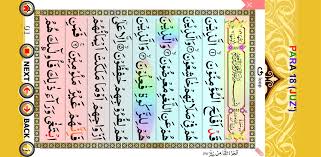 PARA 18 (JUZ')
قَدْ اَفْلَحَ الْمُؤْمِنُوْنَ ۝ الَّذِيْنَ
هُمْ فِيْ صَلَاتِهِمْ خٰشِعُوْنَ ۝ وَالَّذِيْنَ
هُمْ عَنِ اللَّغْوِ مُعْرِضُوْنَ ۝ وَالَّذِيْنَ
هُمْ لِلزَّكٰوةِ فٰعِلُوْنَ ۝ وَالَّذِيْنَ
هُمْ لِفُرُوْجِهِمْ حٰفِظُوْنَ ۝ اِلَّا عَلٰٓى
اَزْوَاجِهِمْ اَوْ مَا مَلَكَتْ اَيْمَانُهُمْ
فَاِنَّهُمْ غَيْرُ مَلُوْمِيْنَ ۝ فَمَنِ
ابْتَغٰى وَرَآءَ ذٰلِكَ فَاُولٰٓئِكَ هُمُ
NEXT
BACK